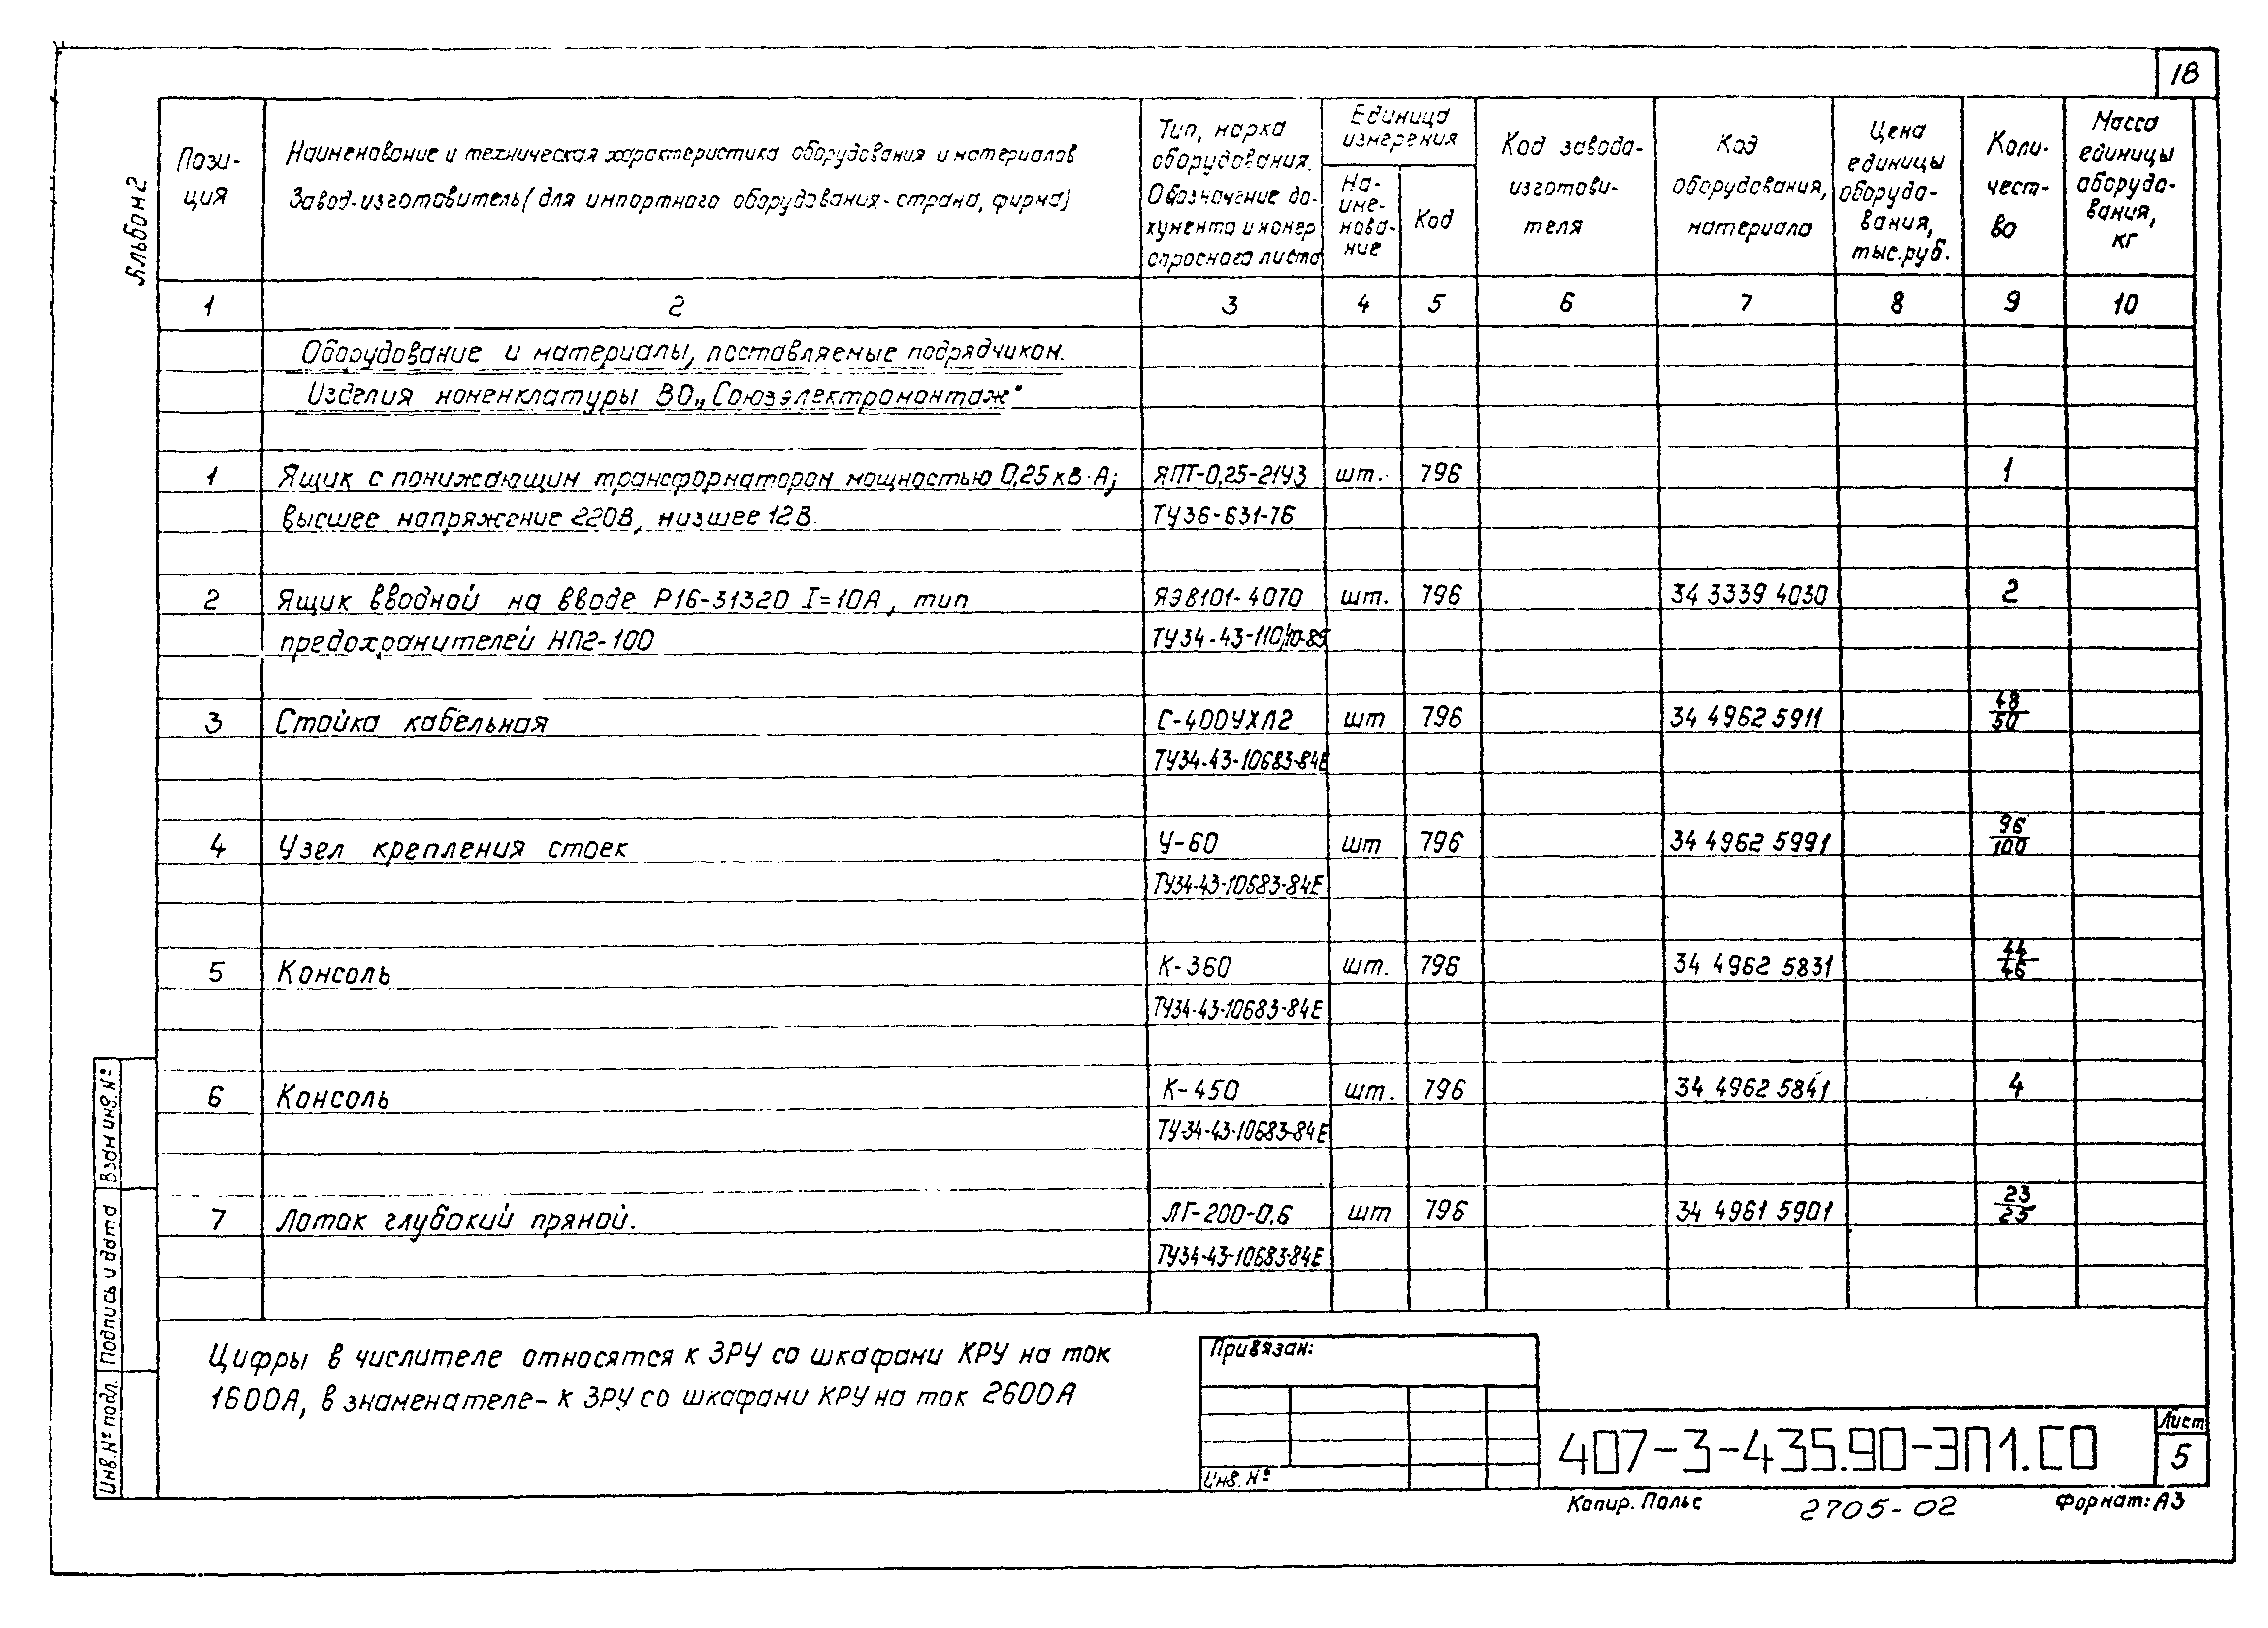 18
Альбом 2
Пози-
ция
Наименование и техническая характеристика оборудования и материалов
Завод-изготовитель (для импортного оборудования - страна, фирма)
Тип, марка
оборудования.
Обозначение до-
кумента и номер
опросного листа
Единица
измерения
На-
име-
нова-
ние
Код
Код завода-
изготови-
теля
Код
оборудования,
материала
Цена
единицы
оборудо-
вания,
тыс.руб.
Коли-
чест-
во
Масса
единицы
оборудо-
вания,
кг
1 2 3 4 5 6 7 8 9 10
Оборудование и материалы, поставляемые подрядчиком.
Изделия номенклатуры ВО „Союзэлектромонтаж"
1 Ящик с понижающим трансформатором мощностью 0,25 кВ·А; ЯПТ-0,25-21У3 шт. 796 1
высшее напряжение 220В, низшее 12В. ТУ36-631-76
2 Ящик вводной на вводе Р16-31320 I=10А, тип ЯЭ8101-4070 шт. 796 34 3339 4030 2
предохранителей НП2-100 ТУ34-43-11040-85
3 Стойка кабельная С-400УХЛ2 шт 796 34 4962 5911 48/50
ТУ34-43-10683-84Е
4 Узел крепления стоек У-60 шт 796 34 4962 5991 96/100
ТУ34-43-10683-84Е
5 Консоль К-360 шт. 796 34 4962 5831 44/46
ТУ34-43-10683-84Е
6 Консоль К-450 шт. 796 34 4962 5841 4
ТУ34-43-10683-84Е
7 Лоток глубокий прямой. ЛГ-200-0.6 шт 796 34 4961 5901 23/25
ТУ34-43-10683-84Е
Цифры в числителе относятся к ЗРУ со шкафами КРУ на ток
1600А, в знаменателе - к ЗРУ со шкафами КРУ на ток 2600А
Привязан:
Инв. №
407-3-435.90-ЭП1.СО
Лист
5
Копир. Полье
2705-02
Формат: А3
Взам инв. №
Подпись и дата
Инв. № подл.